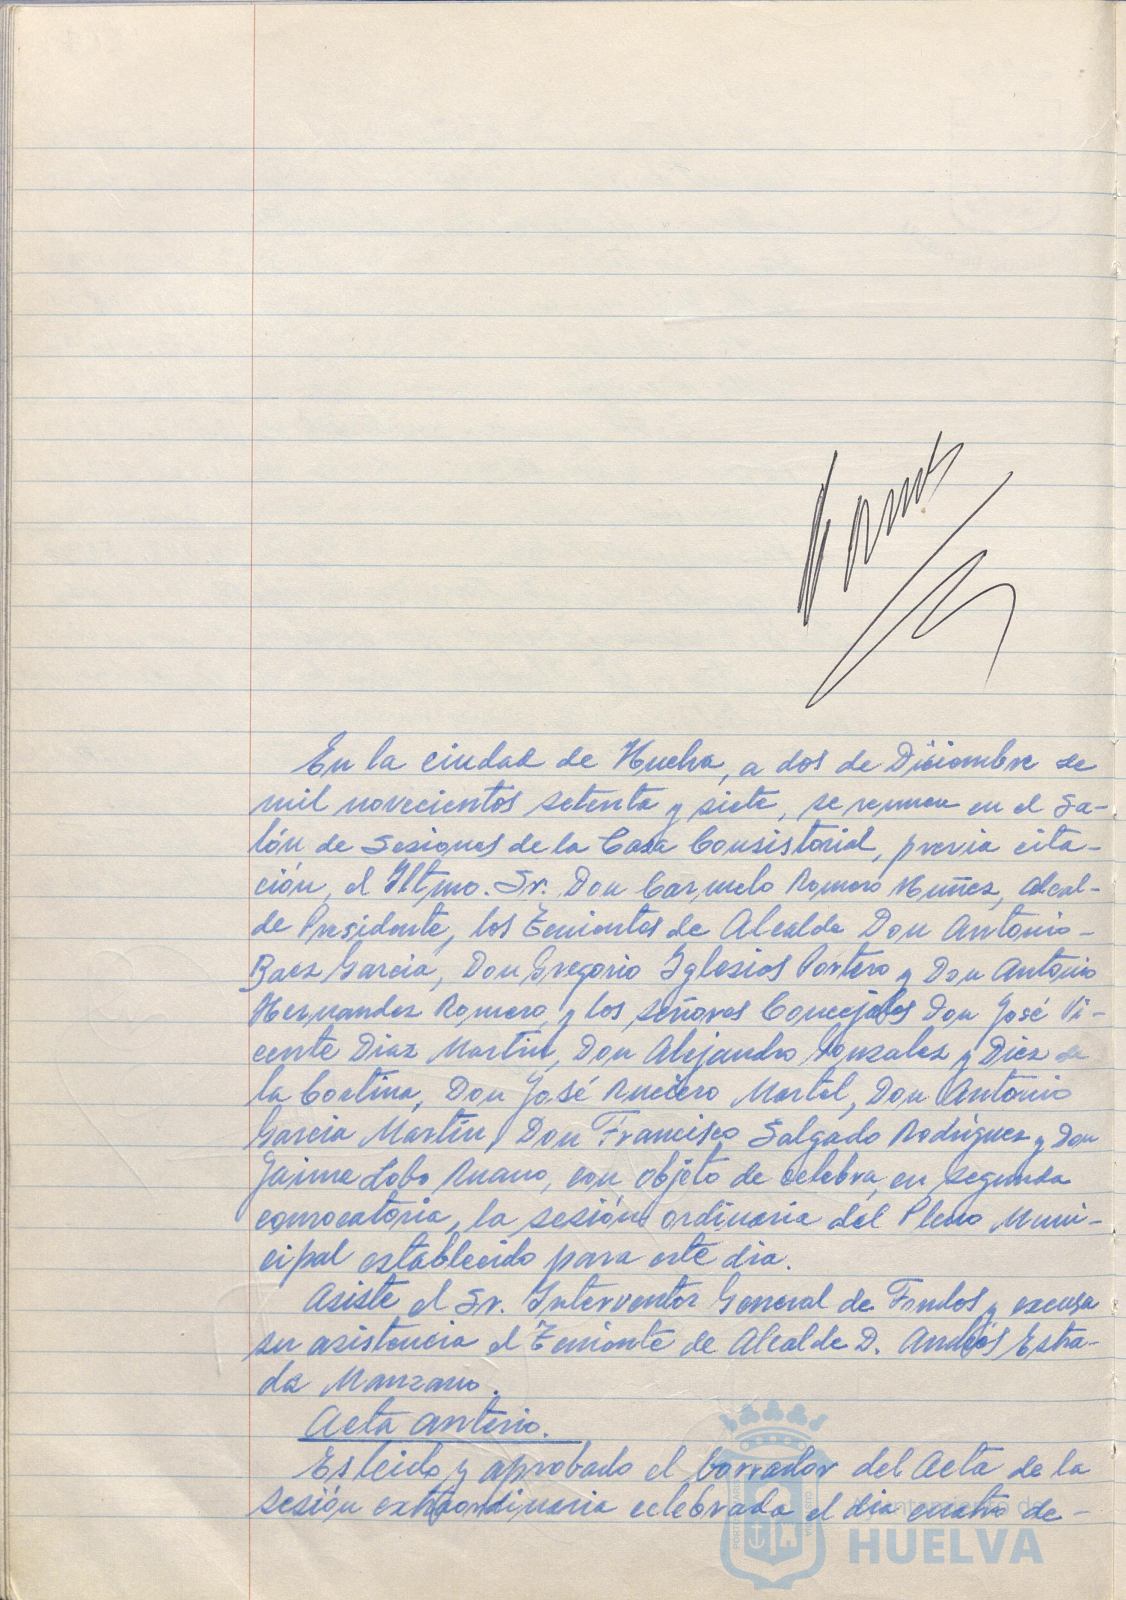 En la ciudad de Huelva, a dos de Diciembre de
mil novecientos setenta y siete, se reunen en el Sa-
lón de Sesiones de la Casa Consistorial, previa cita-
ción, el Iltmo. Sr. Don Carmelo Romero Nuñez, Alcal-
de Presidente, los Tenientes de Alcalde Don Antonio
Baez Garcia, Don Gregorio Iglesias Portero y Don Antonio
Hernandez Romero y los señores Concejales Don José Vi-
cente Diaz Martin, Don Alejandro Gonzalez y Diez de
la Cortina, Don José Martel, Don Antonio
Garcia Martín, Don Francisco Salgado Rodriguez y Don
Jaime Lobo Ruano, con objeto de celebra, en segunda
convocatoria, la sesión ordinaria del Pleno Muni-
cipal establecido para este dia.
Asiste el Sr. Interventor General de Fondos y excusa
su asistencia el Teniente de Alcalde D. Andrés Estra-
da Manzano.
Acta anterio.
Es leido y aprobado el borrador del Acta de la
sesión extraordinaria celebrada el dia cuatro de-
Ayuntamiento de
HUELVA